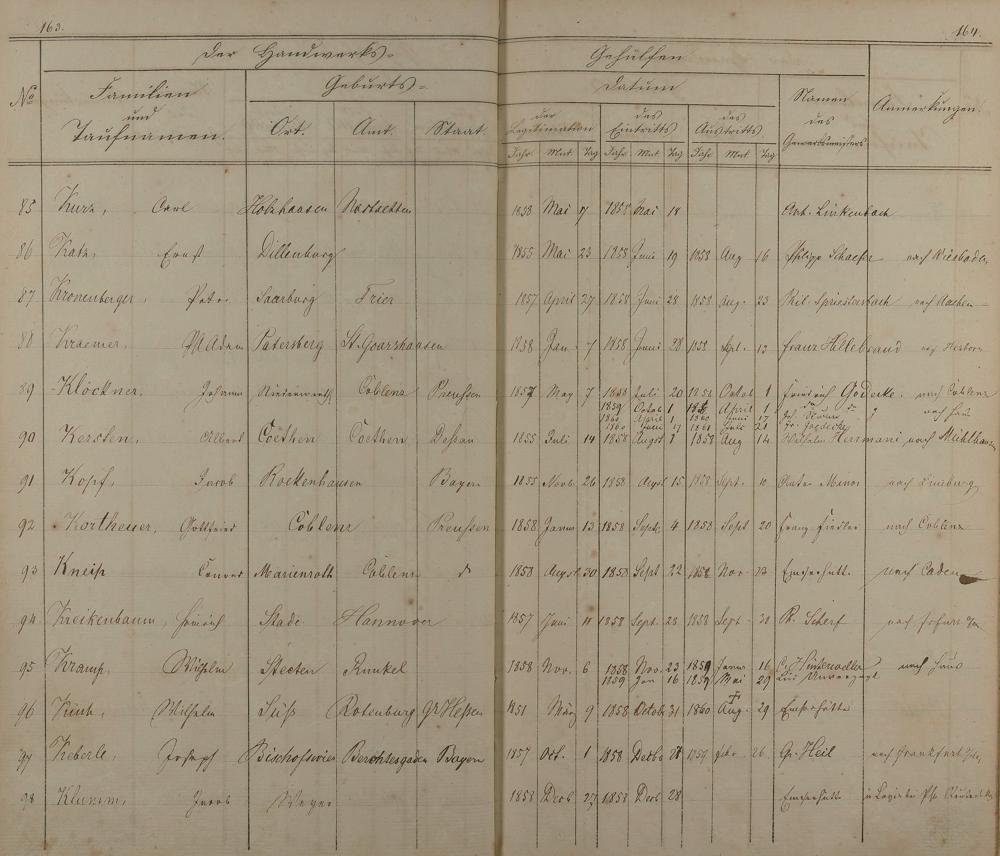 163.
164.
Der Handwerks-
Gehülfen
No
Familien
und
Taufnamen.
Geburts-
Ort. Amt. Staat.
Datum
der Legitimation
des Eintritts
des Austritts
Jahr. Mnt. Tag Jahr. Mnt Tag Jahr. Mnt Tag
Namen
des
Gewerbsmeisters
Anmerkungen.
85 Kurz, Carl Holzhausen Nastaetten 1858 Mai 7 1858 Mai 18 Ant. Linkenbach
86 Katz, Ernst Dillenburg 1855 Mai 23 1858 Juni 19 1858 Aug 16 Philipp Schaefer nach Wiesbaden
87 Kronenberger, Peter Saarburg Trier 1857 April 27 1858 Juni 28 1858 Aug. 23 Phil. Spriestersbach nach Aachen
88 Kraemer, Ph Adam Patersberg St. Goarshausen 1858 Jan 7 1858 Juni 28 1858 Spt. 13 Franz Hillebrand nach Herborn
89 Klöckner, Johann Coblenz Preussen 1857 May 7 1858 Juli 20 1858 Octob 1 Friedrich Godecke. nach Coblenz
1859 Octob 1 April 1
1860 April 1 1860 Juni 17 nach Haus
1860 Juni 17 1861 Juli 21
90 Kersten, Albert Coethen Coethen Dessau 1855 Juli 14 1858 Augst 1858 Aug 14 Wilhelm Hermani nach Mühlhausen
91 Kopf, Jacob Rockenhausen Bayern 1855 Novb. 26 1858 Augst 15 1858 Sept. 10 Peter Minor nach Limburg
92 Kortheuer, Gottfried Coblenz Preussen 1858 Janua 13 1858 Septb 4 1858 Sept 20 Franz Fiedler nach Coblenz
93 Kneip Conrad Marienroth Coblenz do 1858 Augst 30 1858 Sept 22 1858 Nov. 23 Emserhütte nach Caden
94 Kreikenbaum, Heinrich Stade Hannover 1857 Juni 11 1858 Sept. 28 1858 Sept 30 R. Scherf nach Erfurt
95 Kramp, Wilhelm Steeten Runkel 1858 Nov. 6 1858 Nov. 23 1859 Janua 16 C. J. nach Haus
1859 Jan 16 1859 Mai 29
96 Wilhelm Süß Rotenburg Gr Hessen 1851 März 9 1858 Octob 31 1860 Aug. 29 Emserhütte
97 Keberle, Joseph Bischofswies Berchtesgaden Bayern 1857 Oct. 1 1858 Decbr 28 1859 Febr. 26 Gr. Heil nach Frankfurt
98 Klumm, Jacob Weyer 1858 Decb 27 1858 Decb 28 Emserhütte